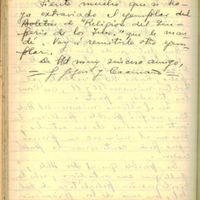 Siento mucho que se ha-
ya extraviado el ejemplar del
"Religión del Im-
perio de los Incas" que le man-
dé. Voy a remitirle otro ejem-
plar.
De Ud muy sincero amigo,
J. Jijón y Caamaño